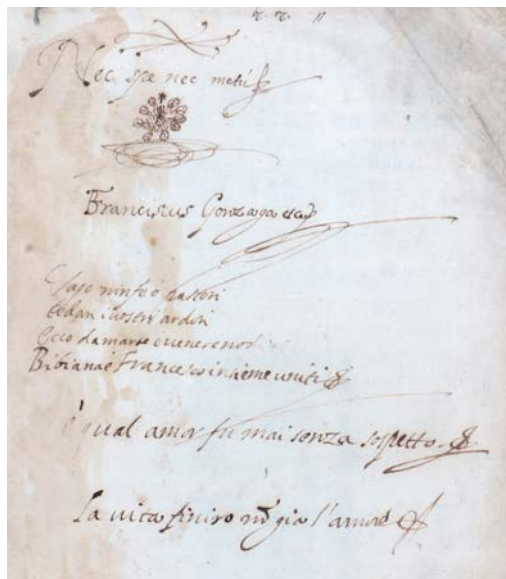 Nec spe nec metu
Franciscus Gonzaga etc
ninfe o pastori
cedan i vostri ardori
Ecco da marte e venere
Bibiana e Francesco insieme uniti
e qual amor fu mai senza sospetto
La vita finiro nō gia l'amore